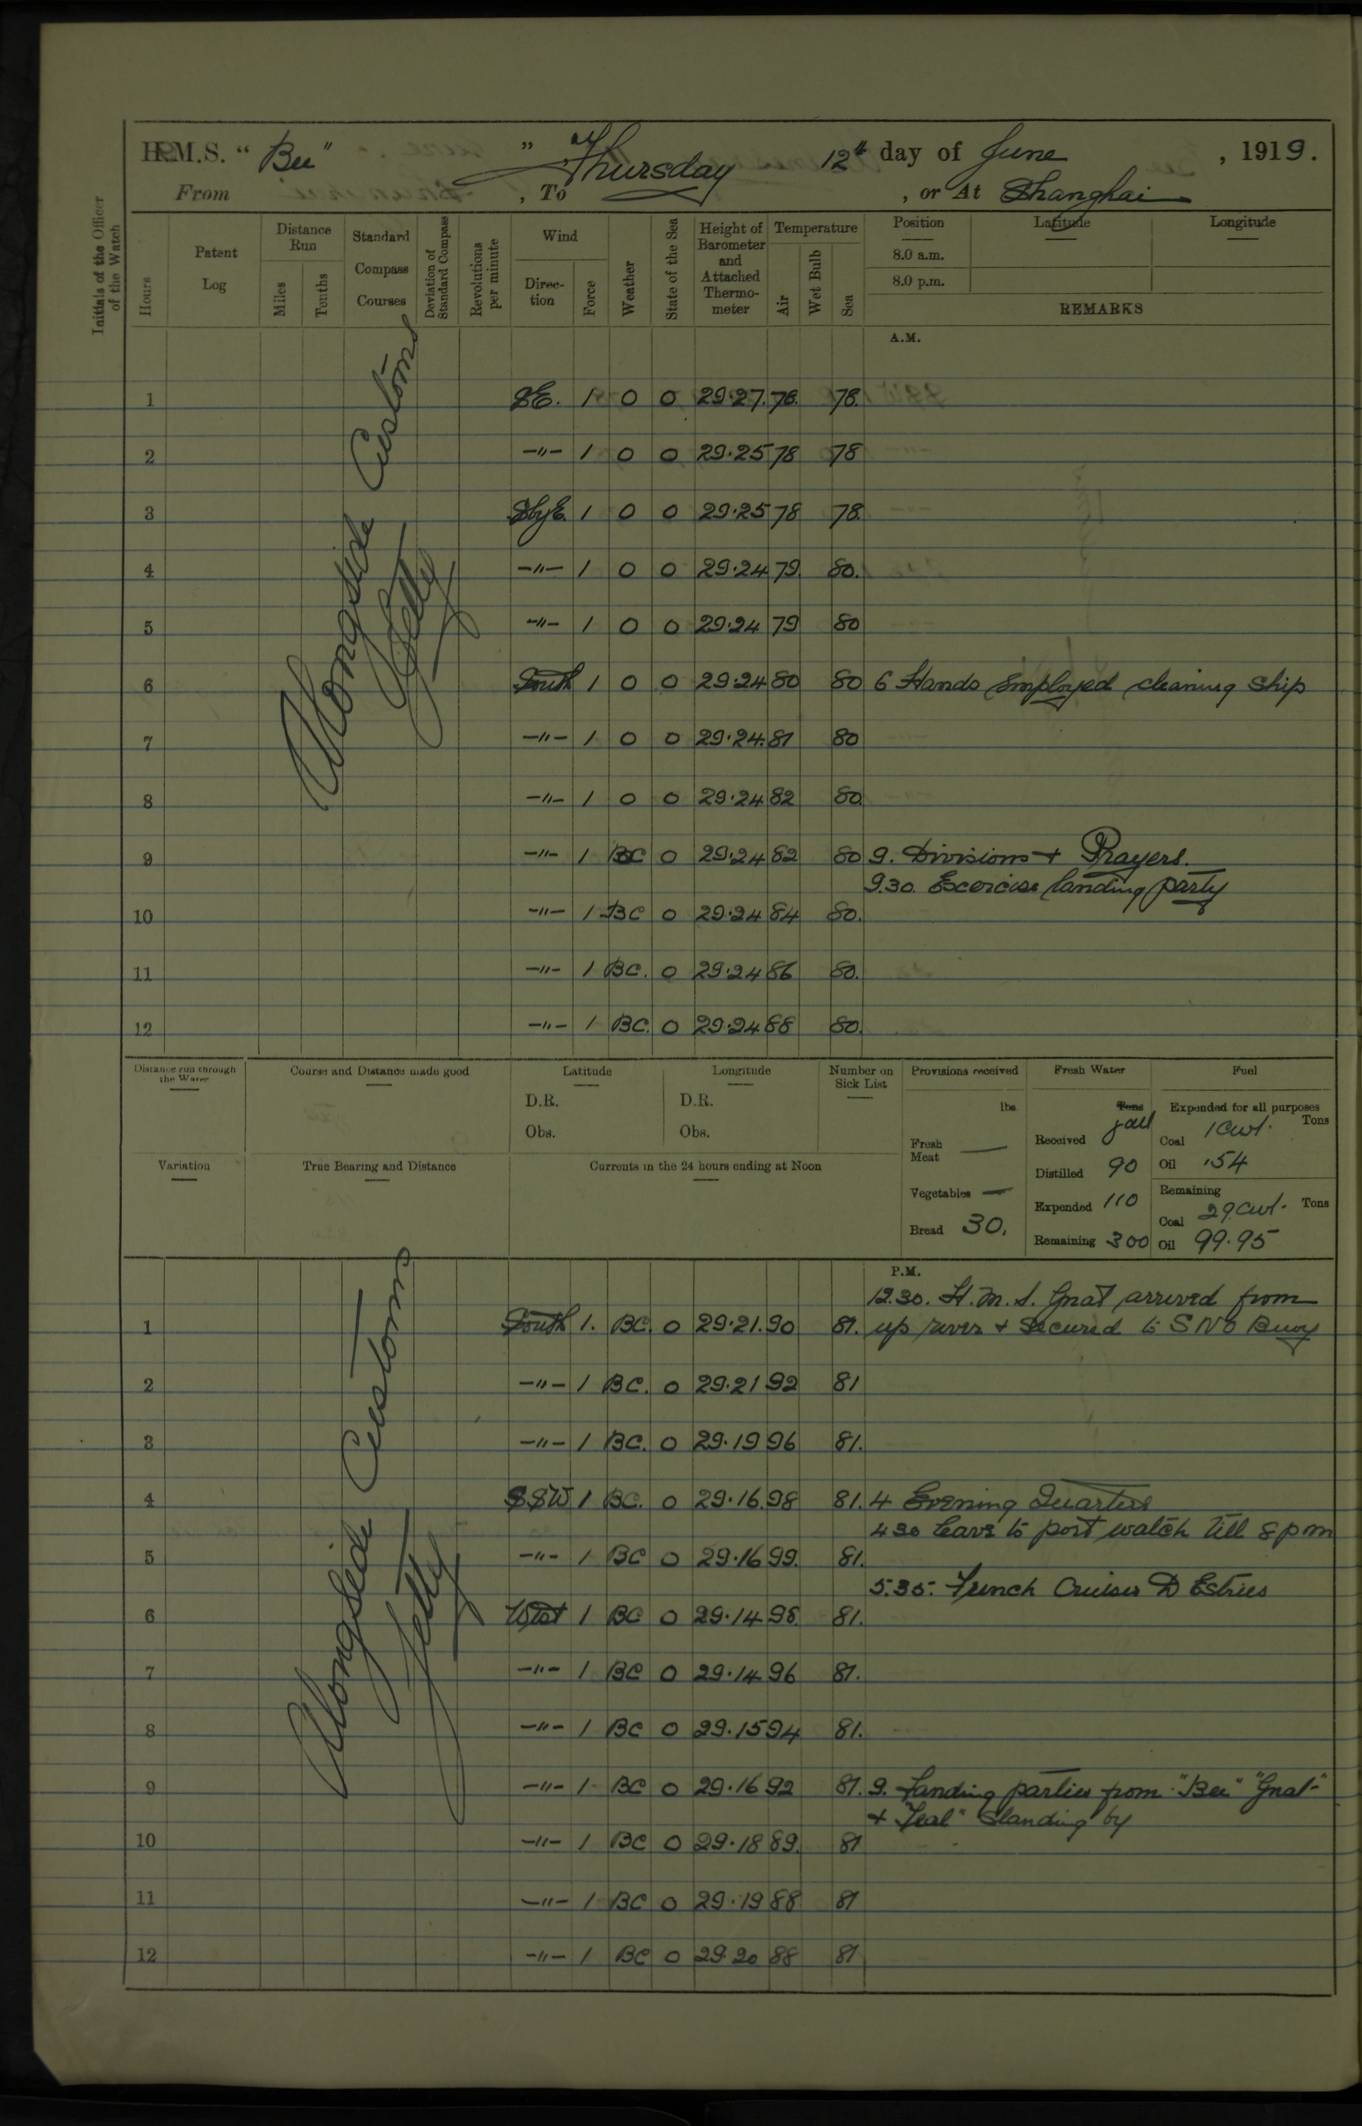 H.M.S. “ Bee” ” Thursday 12th day of June , 1919.
From , To , or At Shanghai
Initials of the Officer of the Watch
Hours
Patent Log
Distance Run
Miles
Tenths
Standard Compass Courses
Deviation of Standard Compass
Revolutions per minute
Wind
Direction
Force
Weather
State of the Sea
Height of Barometer and Attached Thermometer
Temperature
Air
Wet Bulb
Sea
Position
8.0 a.m.
8.0 p.m.
Latitude
Longitude
REMARKS
A.M.
Alongside Customs
Jetty
1 SE. 1 0 0 29.27. 78. 78.
2 -"- 1 0 0 29.25 78 78
3 SbyE. 1 0 0 29.25 78 78.
4 -"- 1 0 0 29.24 79. 80.
5 -"- 1 0 0 29.24 79 80
6 South 1 0 0 29.24 80 80 6 Hands Employed cleaning Ship
7 -"- 1 0 0 29.24. 81 80
8 -"- 1 0 0 29.24 82 80
9 -"- 1 BC 0 29.24 82 80 9. Divisions + Prayers.
9.30 Excercise landing party
10 -"- 1 BC 0 29.24 84 80.
11 -"- 1 BC. 0 29.24 86 80.
12 -"- 1 BC. 0 29.24 88 80.
Distance run through the Water
Course and Distance made good
Latitude
D.R.
Obs.
Longitude
D.R.
Obs.
Number on Sick List
Variation
True Bearing and Distance
Currents in the 24 hours ending at Noon
Provisions received
lbs.
Fresh Meat —
Vegetables —
Bread 30.
Fresh Water
Tons
gall
Received
Distilled 90
Expended 110
Remaining 300
Fuel
Expended for all purposes
Tons
Coal 1 cwt.
Oil .54
Remaining
Tons
Coal 29 cwt.
Oil 99.95
P.M.
Alongside Customs
Jetty
12.30. H.M.S. Gnat arrived from
1 South 1. BC. 0 29.21. 90 81. up river + Secured to SNO Buoy
2 -"- 1 BC. 0 29.21 92 81
3 -"- 1 BC. 0 29.19 96 81.
4 SSW 1 BC. 0 29.16. 98 81. 4 Evening Quarters
4 30 leave to port watch till 8 pm
5 -"- 1 BC 0 29.16 99. 81.
5.35. French Cruiser D Estrees
6 West 1 BC 0 29.14 98. 81.
7 -"- 1 BC 0 29.14 96 81.
8 -"- 1 BC 0 29.15 94 81.
9 -"- 1 BC 0 29.16 92 81. 9. Landing parties from "Bee" "Gnat"
+ "Teal" Standing by
10 -"- 1 BC 0 29.18 89. 81
11 -"- 1 BC 0 29.19 88 81
12 -"- 1 BC 0 29.20 88 81